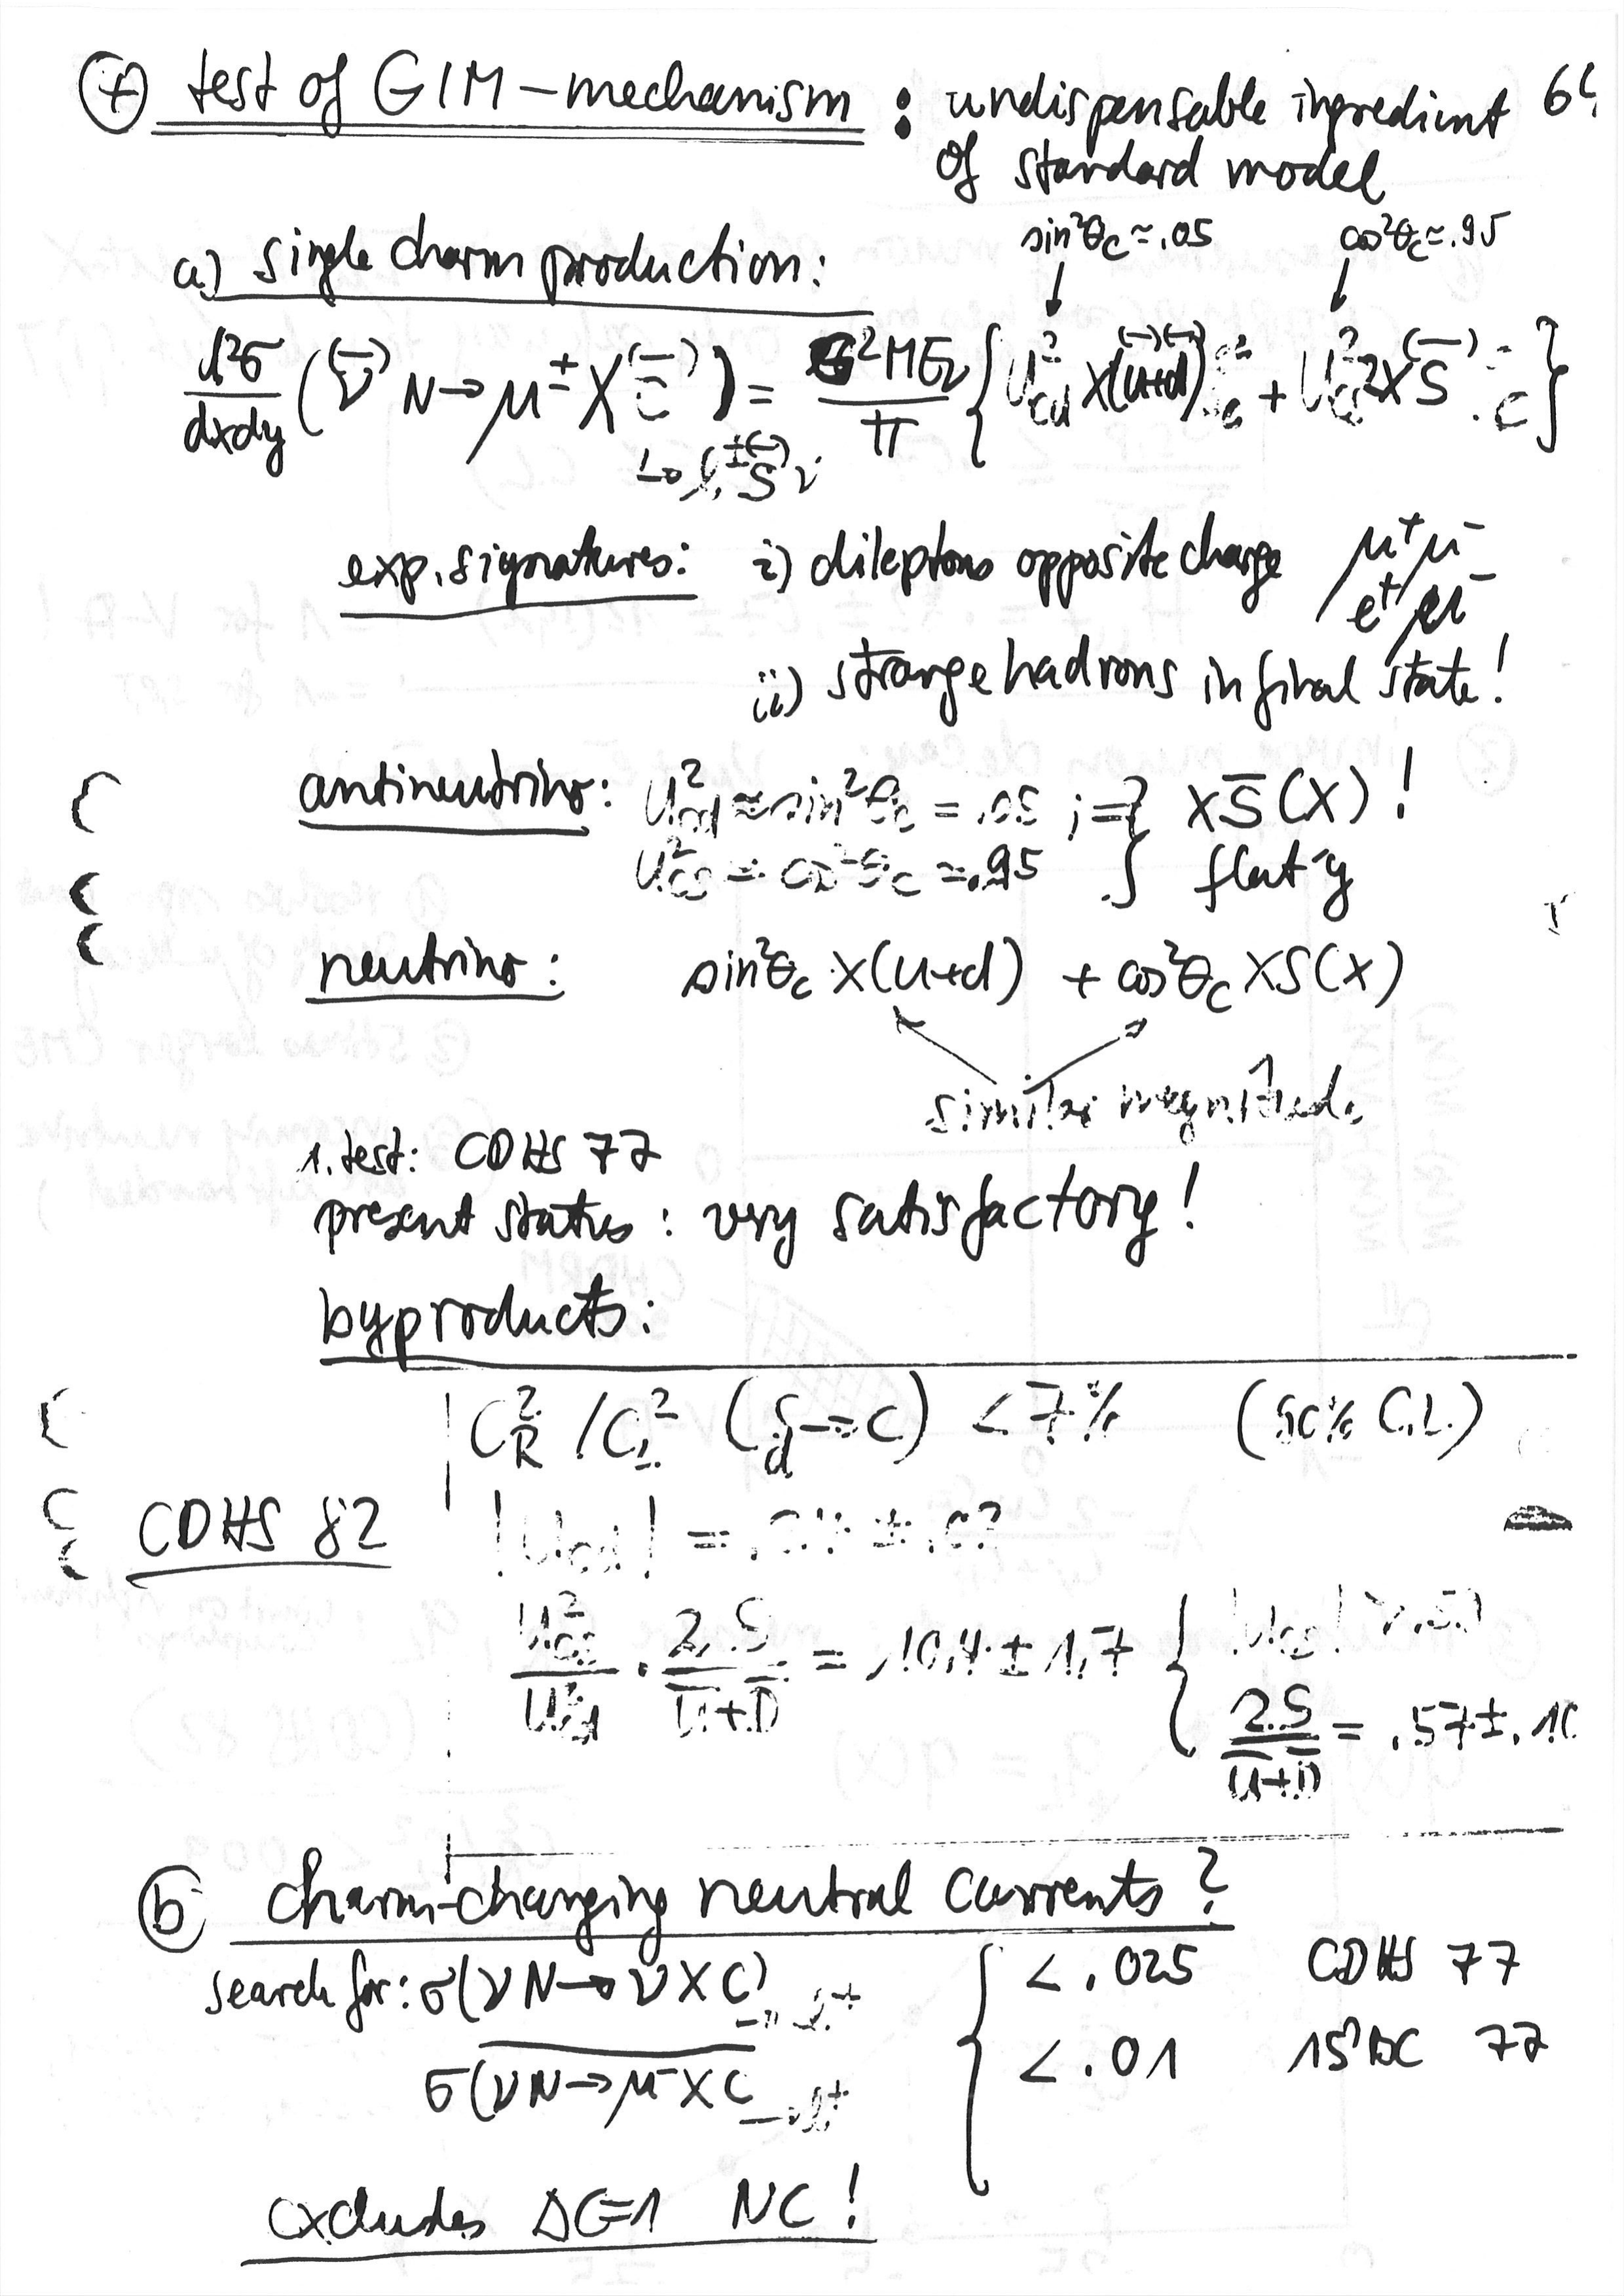 ⑦ test of GIM-mechanism : undispensable ingredient
of standard model
sin²θc ≈ .05   cos²θc ≈ .95
a) single charm production:
d²σ/dxdy (ν(-) N → μ± X c(-)) = G²MEν/π { U²cd x(u+d) + U²cs 2x s(-) }
↳ l± s(-) ν
exp. signatures: i) dileptons opposite charge μ⁺μ⁻
e⁺μ⁻
ii) strange hadrons in final state!
antineutrino: U²cd ≈ sin²θc = .05 ; ⇒ } x s̄(x) !
U²cs = cos²θc ≈ .95 } flat y
neutrino: sin²θc x(u+d) + cos²θc x s(x)
similar magnitude
1. test: CDHS 77
present status : very satisfactory!
byproducts:
C²R / C²L (s d → c) < 7%
CDHS 82 |Ucd| = .24 ± .03
U²cs/U²cd · 2S/(Ū+D̄) = 10,4 ± 1,7 { |Ucs| >
2S/(Ū+D̄) = .57 ± .10
ⓑ charm-changing neutral currents?
search for: σ(νN → νXC → l⁺) { < .025 CDHS 77
σ(νN → μ⁻XC → l⁺) < .01 15'BC 77
excludes ΔC=1 NC!